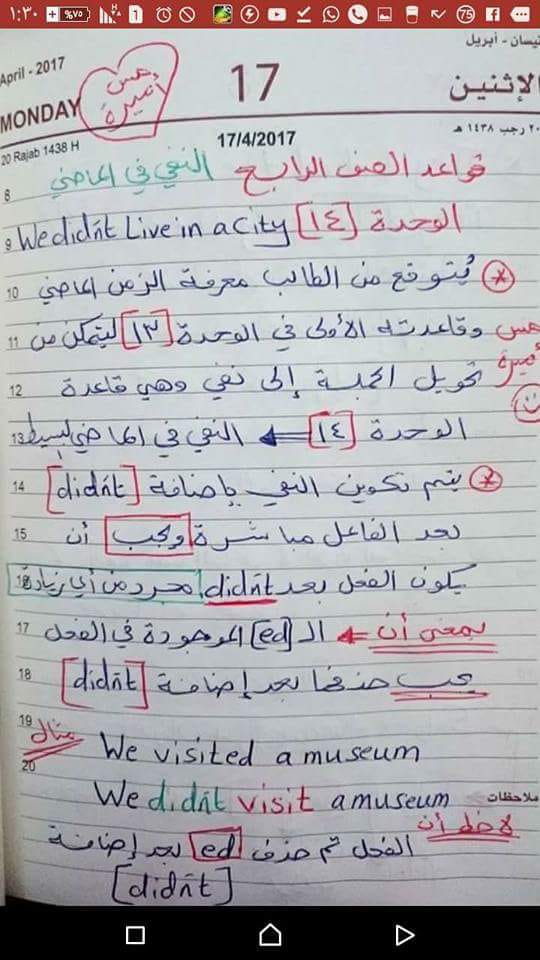 ١:٣٠
%٧٥
75
نيسان - أبريل
April - 2017
17
الإثنين
MONDAY
مس أميرة
٢٠ رجب ١٤٣٨ هـ
20 Rajab 1438 H
17/4/2017
قواعد الصف الرابع النفي في الماضي
8
الوحدة [١٤] We didn't Live in a City
9
* يُتوقع من الطالب معرفة الزمن الماضي
10
وقاعدته الأولى في الوحدة [١٣] ليتمكن من
11
مس أميرة
تحويل الجملة إلى نفي وهي قاعدة
12
الوحدة [١٤] ← النفي في الماضي البسيط
13
* يتم تكوين النفي بإضافة [didn't]
14
بعد الفاعل مباشرة ويجب أن
15
يكون الفعل بعد didn't مجرد من أي زيادة
16
بمعنى أن ← الـ [ed] الموجودة في الفعل
17
يجب حذفها بعد إضافة [didn't]
18
19
مثال
We visited a museum
20
We didn't visit a museum
ملاحظات
لاحظ أن
الفعل تم حذف ed بعد إضافة
[didn't]